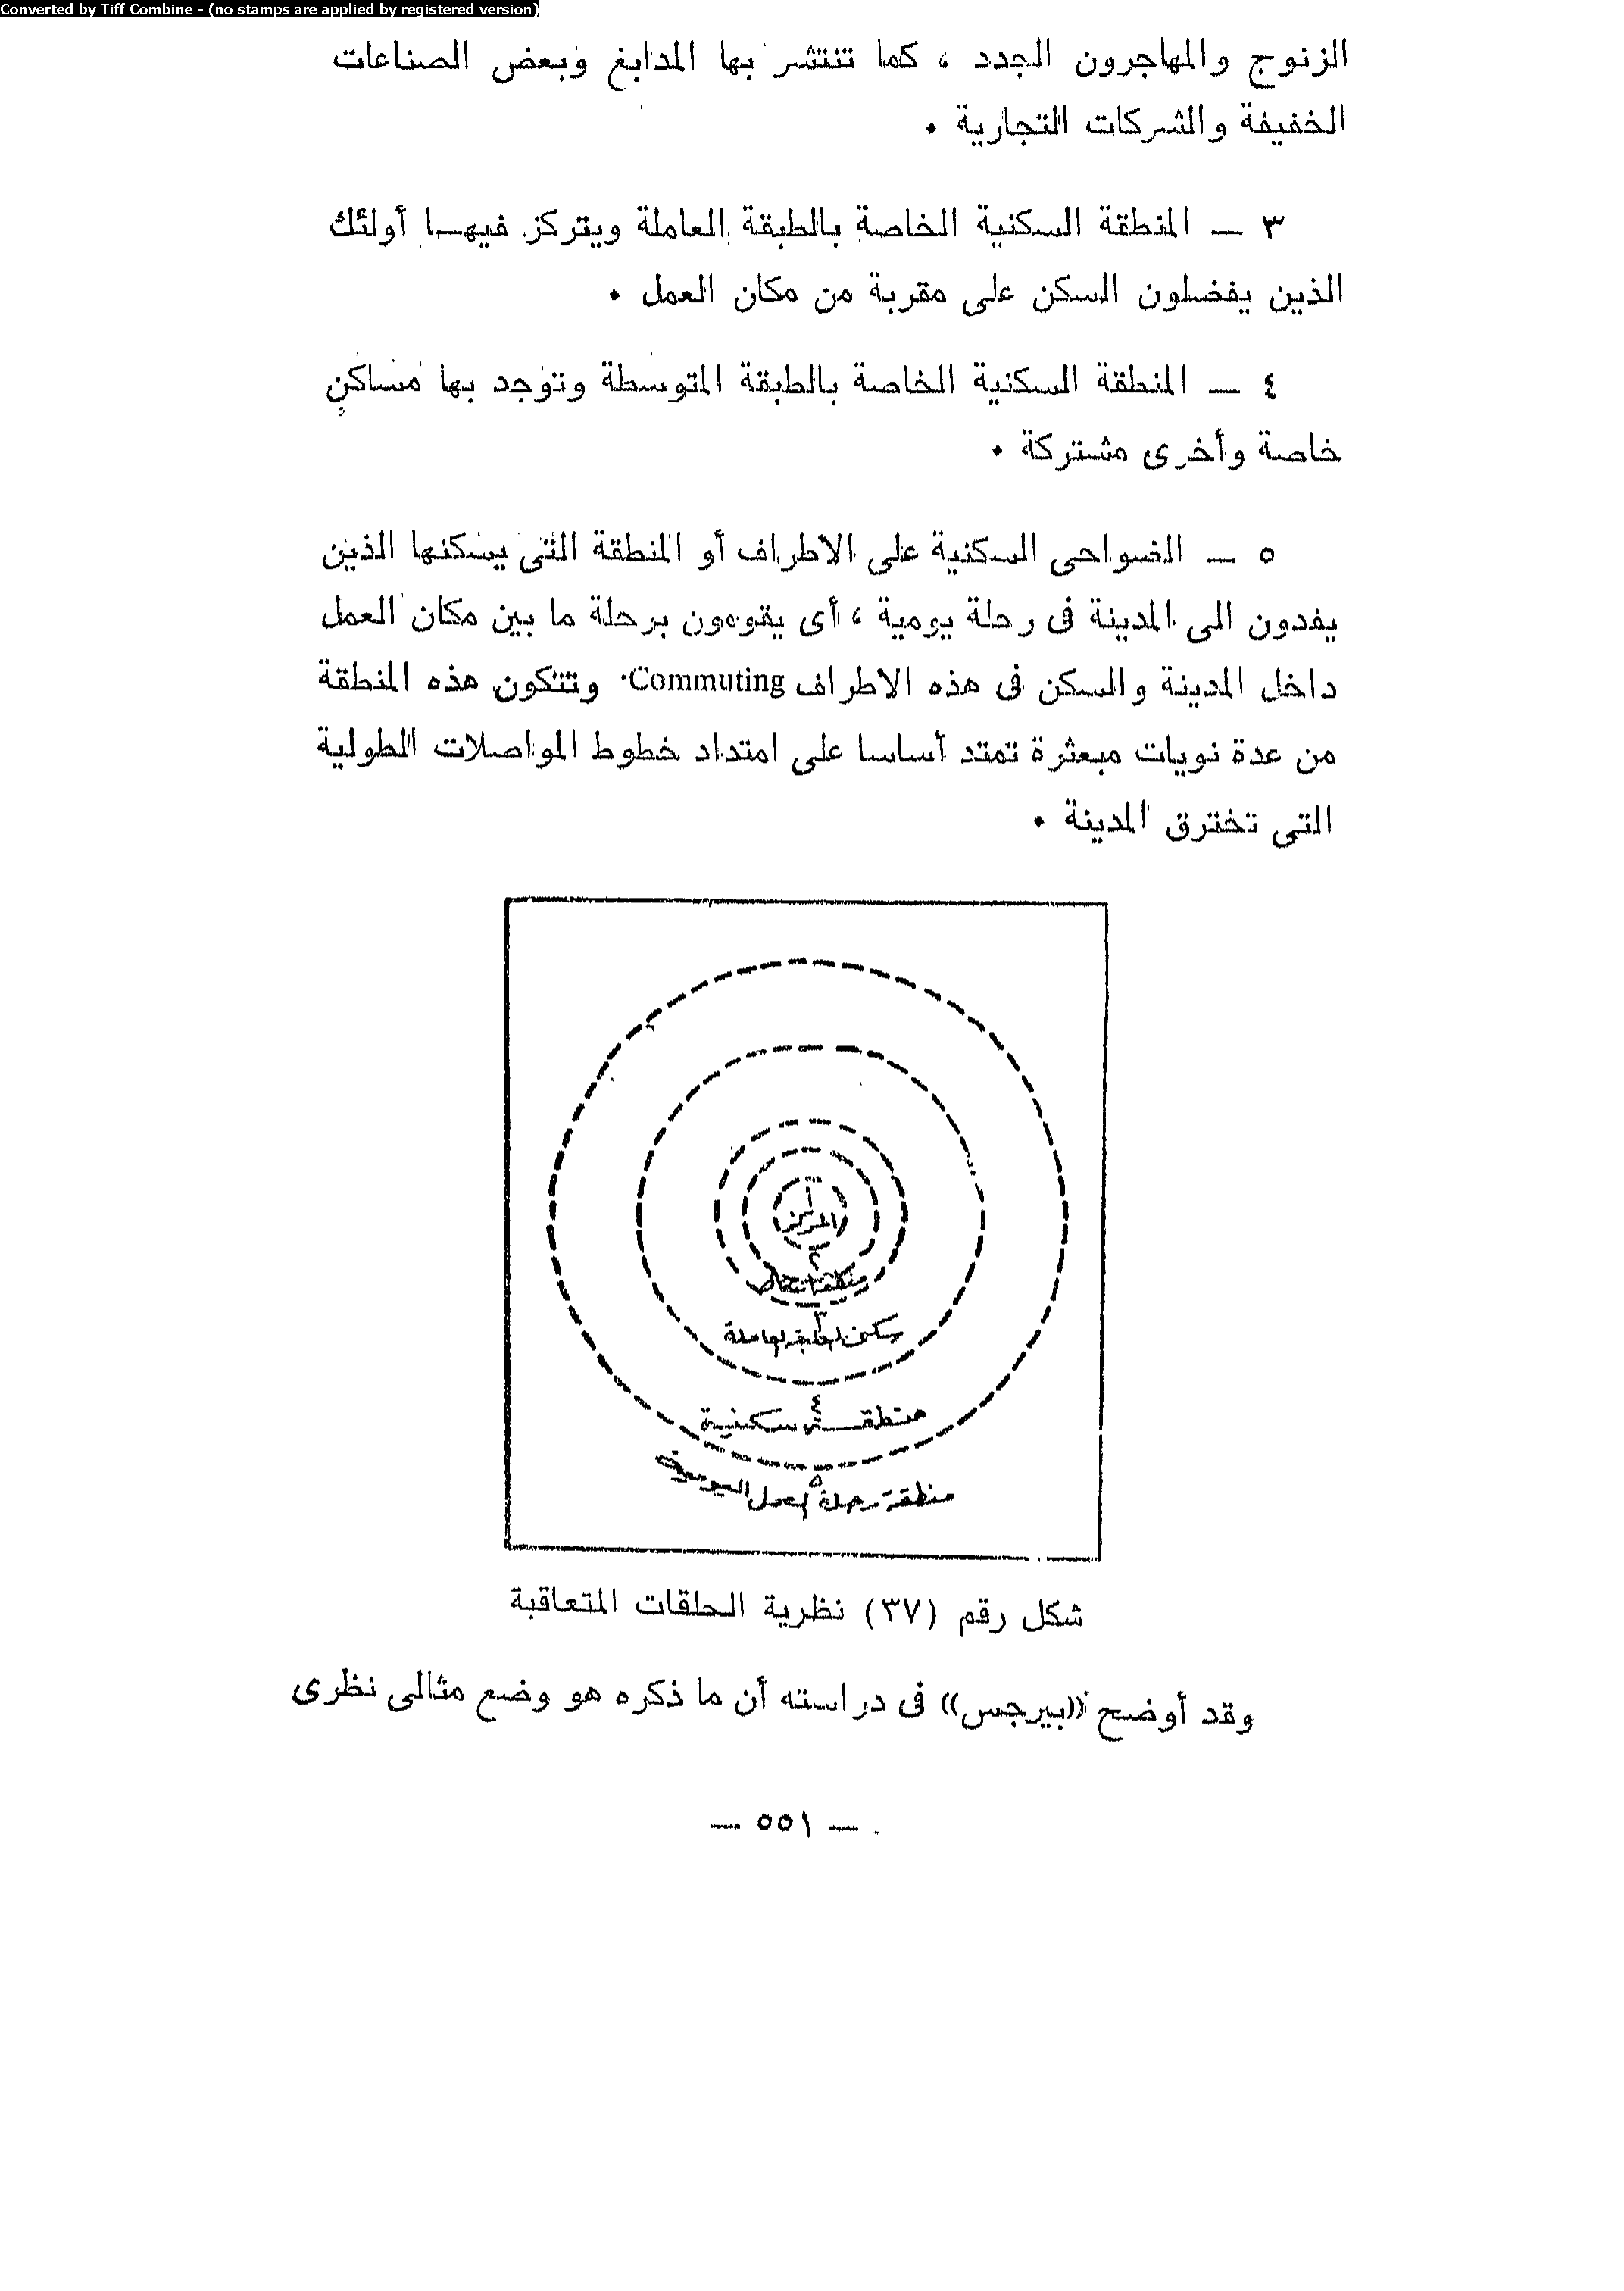 Converted by Tiff Combine - (no stamps are applied by registered version)
الزنوج والمهاجرون الجدد ، كما تنتشر بها المدابغ وبعض الصناعات
الخفيفة والشركات التجارية .
٣ — المنطقة السكنية الخاصة بالطبقة العاملة ويتركز فيهـا أولئك
الذين يفضلون السكن على مقربة من مكان العمل .
٤ — المنطقة السكنية الخاصة بالطبقة المتوسطة وتوجد بها مساكن
خاصة وأخرى مشتركة .
٥ — الضواحى السكنية على الاطراف أو المنطقة التى يسكنها الذين
يفدون الى المدينة فى رحلة يومية ، أى يقومون برحلة ما بين مكان العمل
داخل المدينة والسكن فى هذه الاطراف Commuting. وتتكون هذه المنطقة
من عدة نويات مبعثرة تمتد أساسا على امتداد خطوط المواصلات الطولية
التى تخترق المدينة .
١
المركز
٢
منطقة انتقال
٣
سكن الطبقة العاملة
٤
منطقـة سكنية
٥
منطقة رحلة العمل اليومية
شكل رقم (٣٧) نظرية الحلقات المتعاقبة
وقد أوضح «بيرجس» فى دراسته أن ما ذكره هو وضع مثالى نظرى
— ٥٥١ —